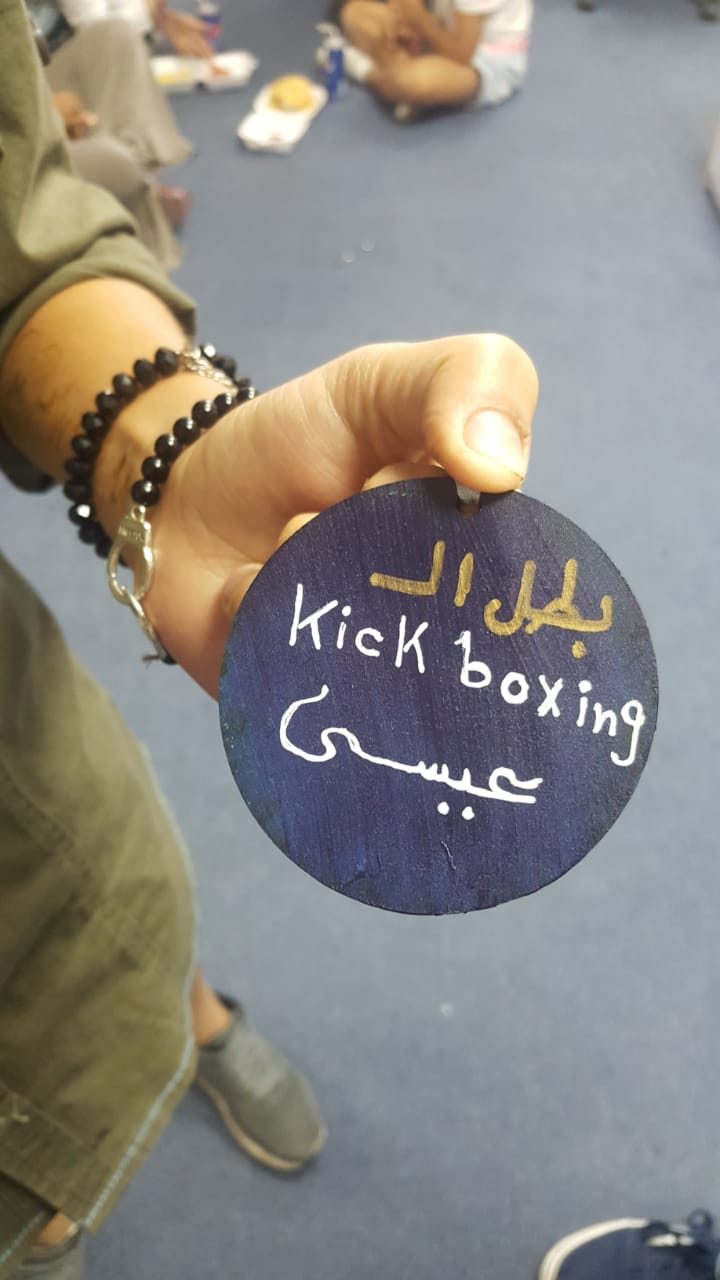 بطل الـ
Kick boxing
عيسى